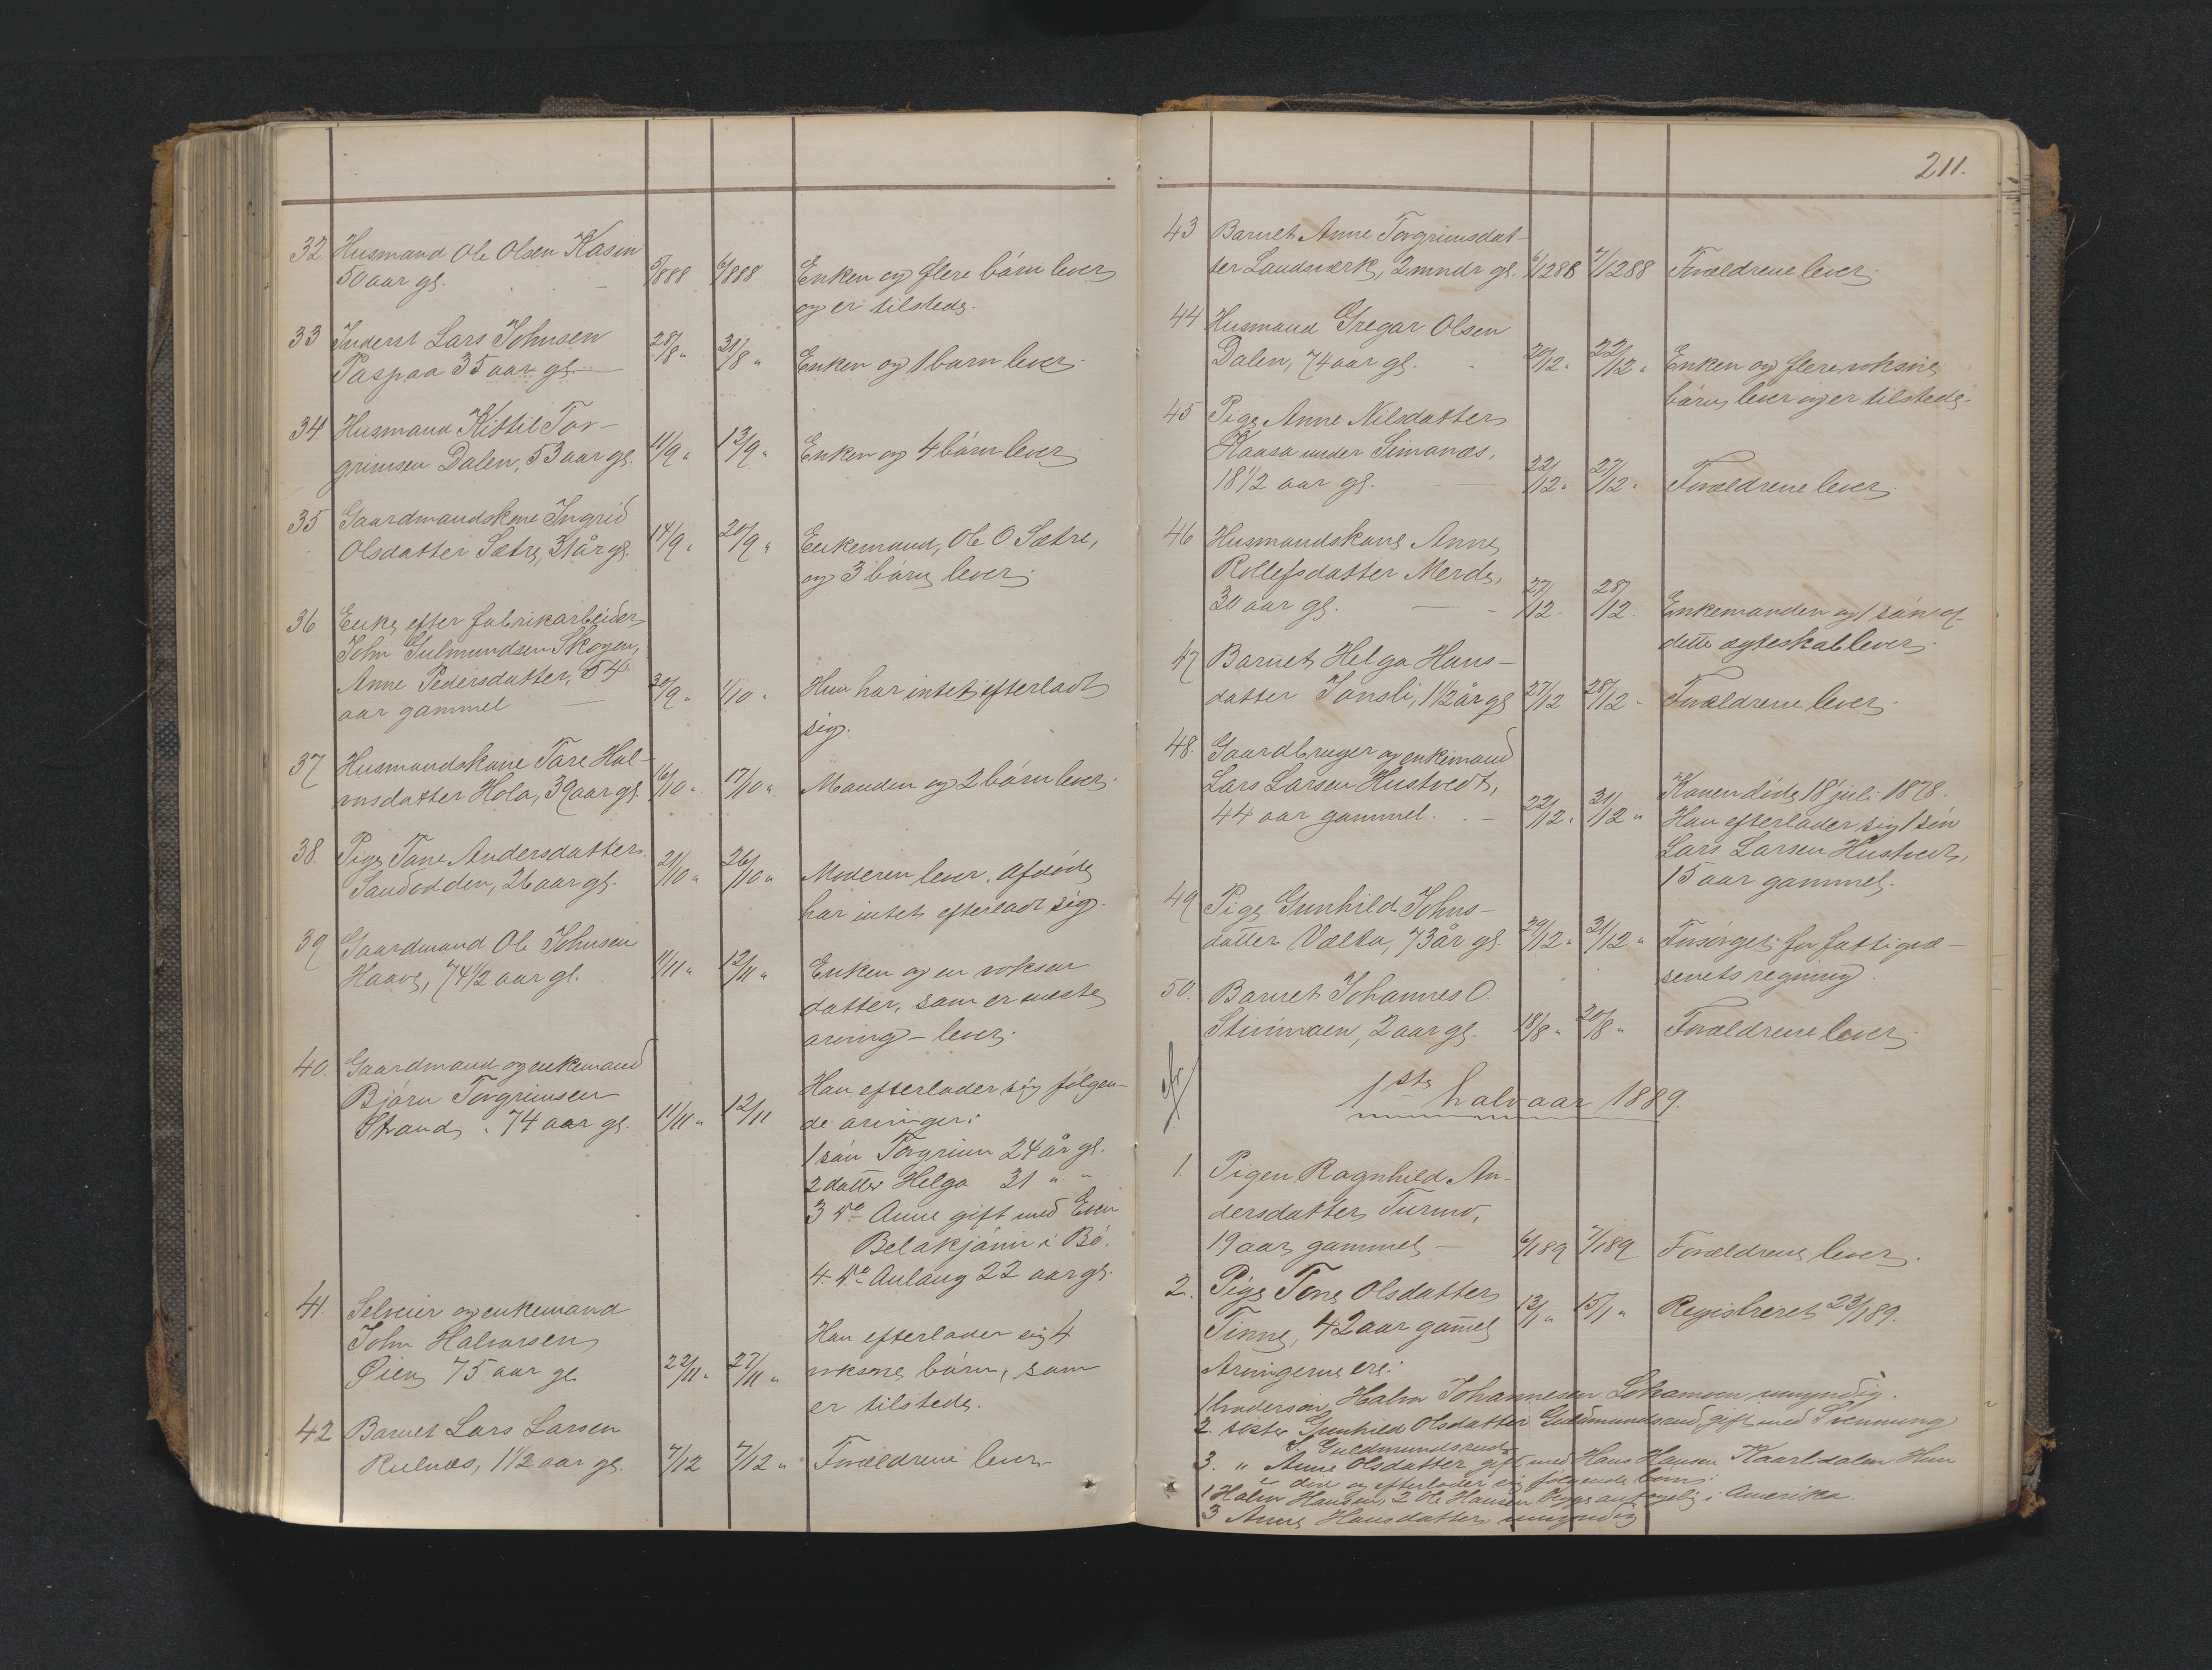 32. Husmand Ole Olsen Kasin
50 aar gl. 5/888 6/888 Enken og flere børn lever
og er tilstede.
33 Inderst Lars Johnsen
Paspaa 35 aar gl. 28/8 " 31/8 " Enken og 1 barn lever.
34 Husmand Kittil Tor-
grimsen Dalen, 53 aar gl. 11/9 " 13/9 " Enken og 4 børn lever
35 Gaardmandskone Ingrid
Olsdatter Sætre, 31 år gl. 14/9 " 20/9 " Enkemand, Ole O. Sætre,
og 3 børn lever.
36 Enke efter fabrikarbeider
John Gulmundsen Skogen,
Anne Pedersdatter, 54
aar gammel 30/9 " 1/10 " Hun har intet efterladt
sig.
37 Husmandskone Tore Hal-
vorsdatter Hola, 39 aar gl. 16/10 " 17/10 " Manden og 2 børn lever.
38. Pige Tone Andersdatter
Sandodden, 26 aar gl. 21/10 " 26/10 " Moderen lever. Afdøde
har intet efterladt sig.
39 Gaardmand Ole Johnsen
Haave, 74 1/2 aar gl. 11/11 " 12/11 " Enken og en voksen
datter, som er neste
arving - lever.
40. Gaardmand og enkemand
Bjørn Torgrimsen
Strand, 74 aar gl. 11/11 " 12/11 Han efterlader sig følgen-
de arvinger:
1 søn Torgrim 24 år gl.
2 datter Helga 31 " "
3 do Anne gift med Even
Belakjønn i Bø.
4. do Aslaug 22 aar gl.
41. Selveier og enkemand
John Halvorsen
Øien 75 aar gl. 22/11 " 27/11 " Han efterlader sig 4
voksne børn, som
er tilstede.
42 Barnet Lars Larsen
Rulnæs, 1 1/2 aar gl. 7/12 7/12 " Forældrene lever
211.
43 Barnet Anne Torgrimsdat-
ter Landsverk, 2 mndr gl. 6/1288 7/1288 Forældrene lever.
44 Husmand Gregar Olsen
Dalen, 74 aar gl. 20/12 " 22/12 " Enken og flere voksne
børn lever og er tilstede.
45 Pige Anne Nilsdatter
Kaasa under Simones,
18 1/2 aar gl. 22/12 " 27/12 " Forældrene lever.
46 Husmandskone Anne
Rollefsdatter Merde,
30 aar gl. 27/12 - 28/12. Enkemanden og 1 søn af
dette ægteskab lever.
47 Barnet Helga Hans-
datter Jonsli, 1 1/2 år gl 27/12 28/12 - Forældrene lever.
48. Gaardbruger og enkemand
Lars Larsen Hustvedt,
44 aar gammel. 22/12 " 31/12 " Konen døde 18 juli 1878.
Han efterlader sig 1 søn
Lars Larsen Hustvedt,
15 aar gammel.
49 Pige Gunhild Johns-
datter Valta, 73 år gl. 29/12 " 31/12 " Forsørget for fattigvæ-
senets regning.
50. Barnet Johannes O.
Stinimoen, 2 aar gl. 18/8 " 20/8 " Forældrene lever.
1ste halvaar 1889.
1. Pigen Ragnhild An-
dersdatter Turmo,
19 aar gammel - 6/189 7/189 Forældrene lever.
2. Pige Tone Olsdatter
Tinne, 42 aar gamel 13/1 " 15/1 " Registreret 23/189.
Arvingerne ere:
1 brodersøn Halvor Johannesen umyndig.
2. søster Gunhild Olsdatter Guldmundsrud gift med Svennung
S. Guldmundsrud
3. " Anne Olsdatter gift med Hans Hansen Kaarlidalen Hun
død og efterlader sig følgende børn:
1 Halvor Hansen, 2 Ole Hansen begge antagelig i Amerika.
3 Anne Hansdatter, umyndig